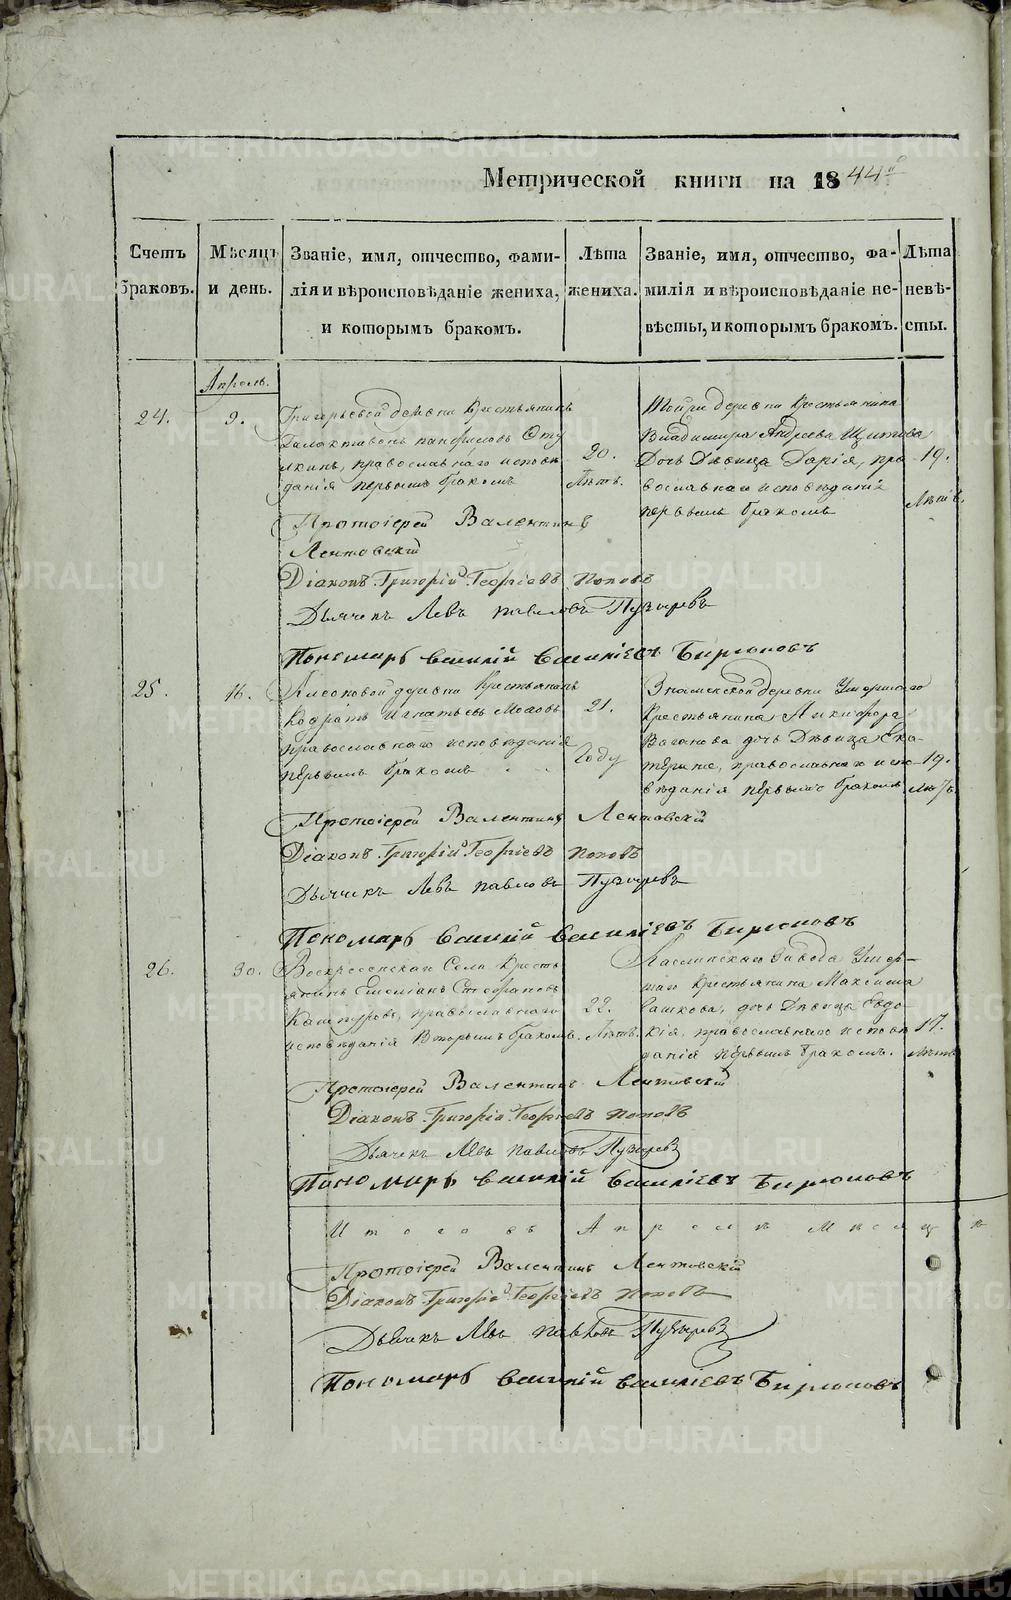 Метрической книги на 1844й
Счетъ браковъ.
Мѣсяцъ и день.
Званіе, имя, отчество, фами-
лія и вѣроисповѣданіе жениха,
и которымъ бракомъ.
Лѣта жениха.
Званіе, имя, отчество, фа-
милія и вѣроисповѣданіе не-
вѣсты, и которымъ бракомъ.
Лѣта невѣ-
сты.
Апрель.
24.
9.
Григорьевой деревни Крестьянинъ
Галактіонъ Панфиловъ
православнаго исповѣ
данія первымъ бракомъ
20.
Лѣтъ.
деревни Крестьянина
Владимира Андреева Щипова
Дочь Дѣвица Дарія, пра
вославнаго исповѣданія
первымъ бракомъ
19.
Лѣтъ.
Протоіерей Валентинъ
Лентовскій
Діаконъ Григорій Георгіевъ Поповъ
Дьячекъ Левъ Павловъ Пузыревъ
Пономарь Василій Василіевъ Бирюковъ
25.
16.
деревни Крестьянинъ
Кодратъ Игнатьевъ
православнаго исповѣданія
первымъ бракомъ
21.
Году
Знаменской деревни Умершаго
Крестьянина Никифора
Ваганова дочь Дѣвица Ека-
терина, православнаго испо-
вѣданія первымъ бракомъ
19.
Лѣтъ.
Протоіерей Валентинъ Лентовскій
Діаконъ Григорій Георгіевъ Поповъ
Дьячекъ Левъ Павловъ Пузыревъ
Пономарь Василій Василіевъ Бирюковъ
26.
30.
Воскресенскаго Села Кресть
янинъ Емеліанъ Стефановъ
православнаго
исповѣданія Вторымъ бракомъ.
22.
Лѣтъ.
Каслинскаго Завода Умер-
шаго Крестьянина Максима
дочь Дѣвица Евдо-
кія, православнаго исповѣ
данія первымъ бракомъ.
17.
Лѣтъ
Протоіерей Валентинъ Лентовскій
Діаконъ Григорій Георгіевъ Поповъ
Дьячекъ Левъ Павловъ Пузыревъ
Пономарь Василій Василіевъ Бирюковъ
Итого въ Апрелѣ Мѣсяцѣ
Протоіерей Валентинъ Лентовскій
Діаконъ Григорій Георгіевъ Поповъ
Дьячекъ Левъ Павловъ Пузыревъ
Пономарь Василій Василіевъ Бирюковъ
METRIKI.GASO-URAL.RU